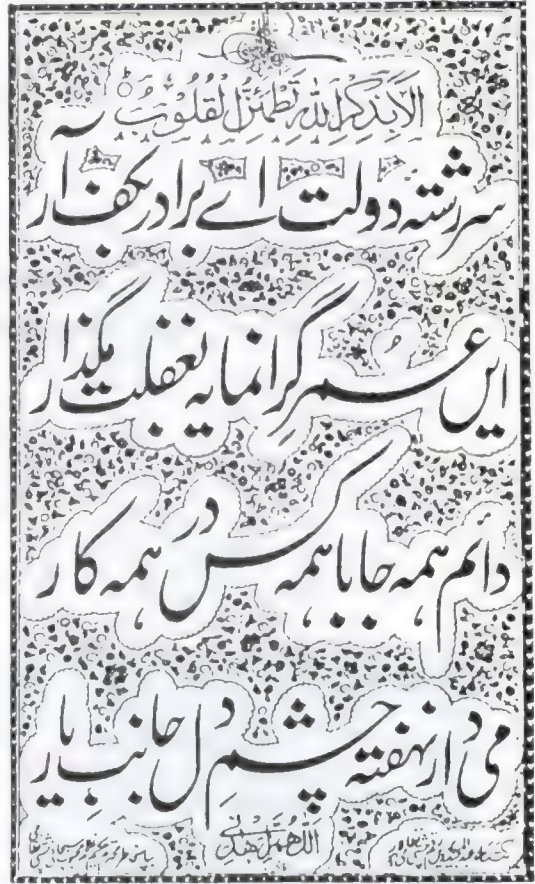 الا بذکر الله تطمئن القلوب
سر رشته دولت اے برادر بکف آر
ایں عمر گرانمایہ بغفلت مگذار
دائم همه جا با همه کس در همه کار
می دار نہفته چشم دل جانب یار